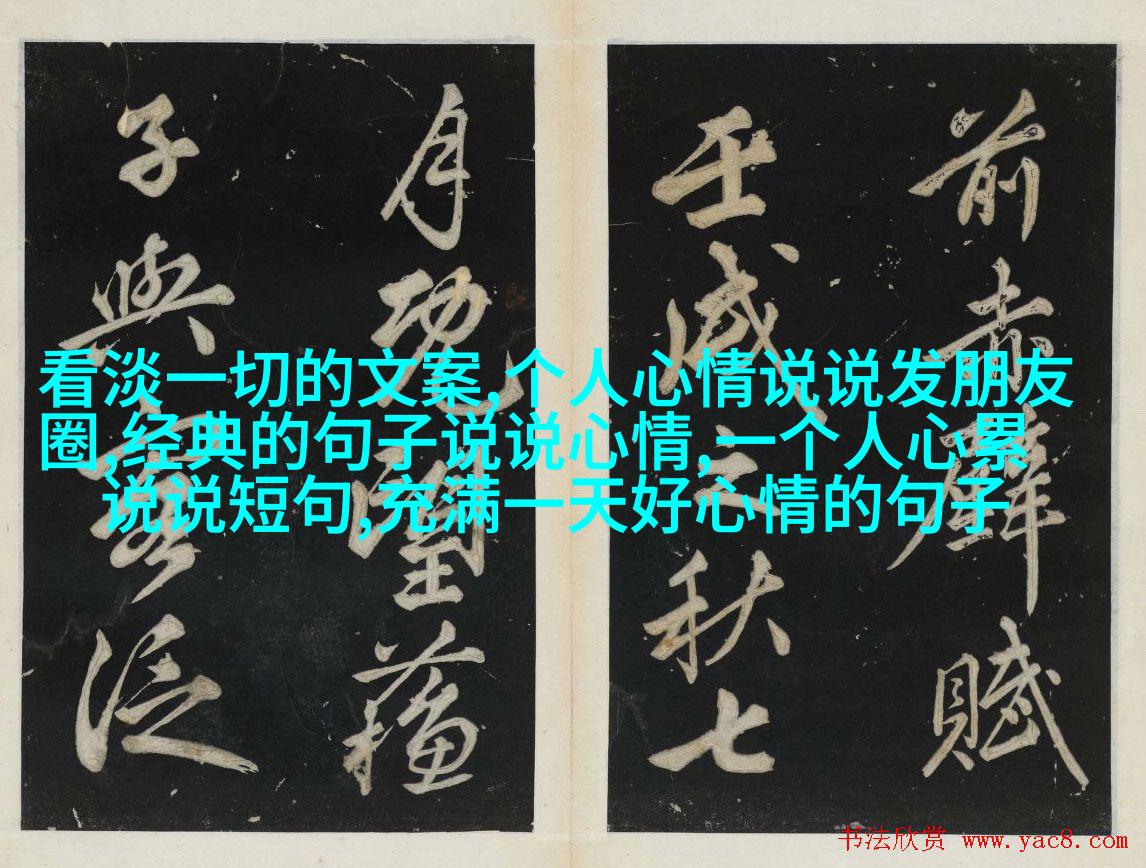 前赤壁賦
壬戌之秋七
月既望蘓
子與客泛
看淡一切的文案,个人心情说说发朋友
圈,经典的句子说说心情,一个人心累
说说短句,充满一天好心情的句子
书法欣赏 www.yac8.com